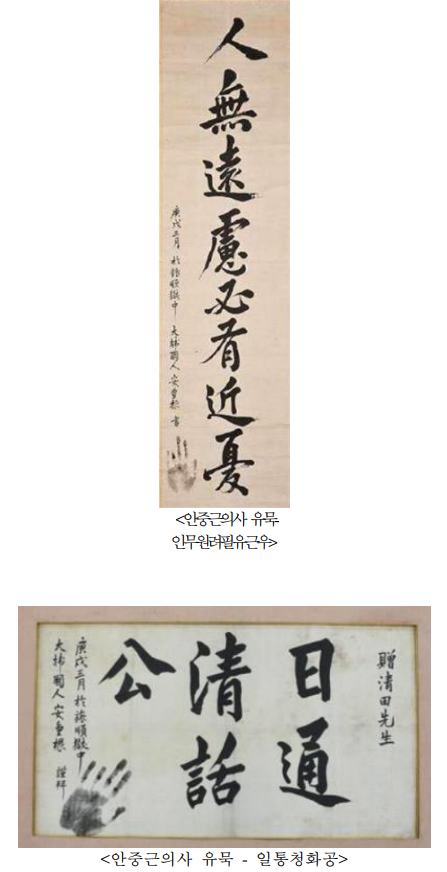 人無遠慮必有近憂
庚戌三月 於旅順獄中 大韓國人 安重根 書
<안중근의사 유묵-
인무원려필유근우>
贈清田先生
日通
清話
公
庚戌三月 於旅順獄中
大韓國人 安重根 謹拜
<안중근의사 유묵 - 일통청화공>